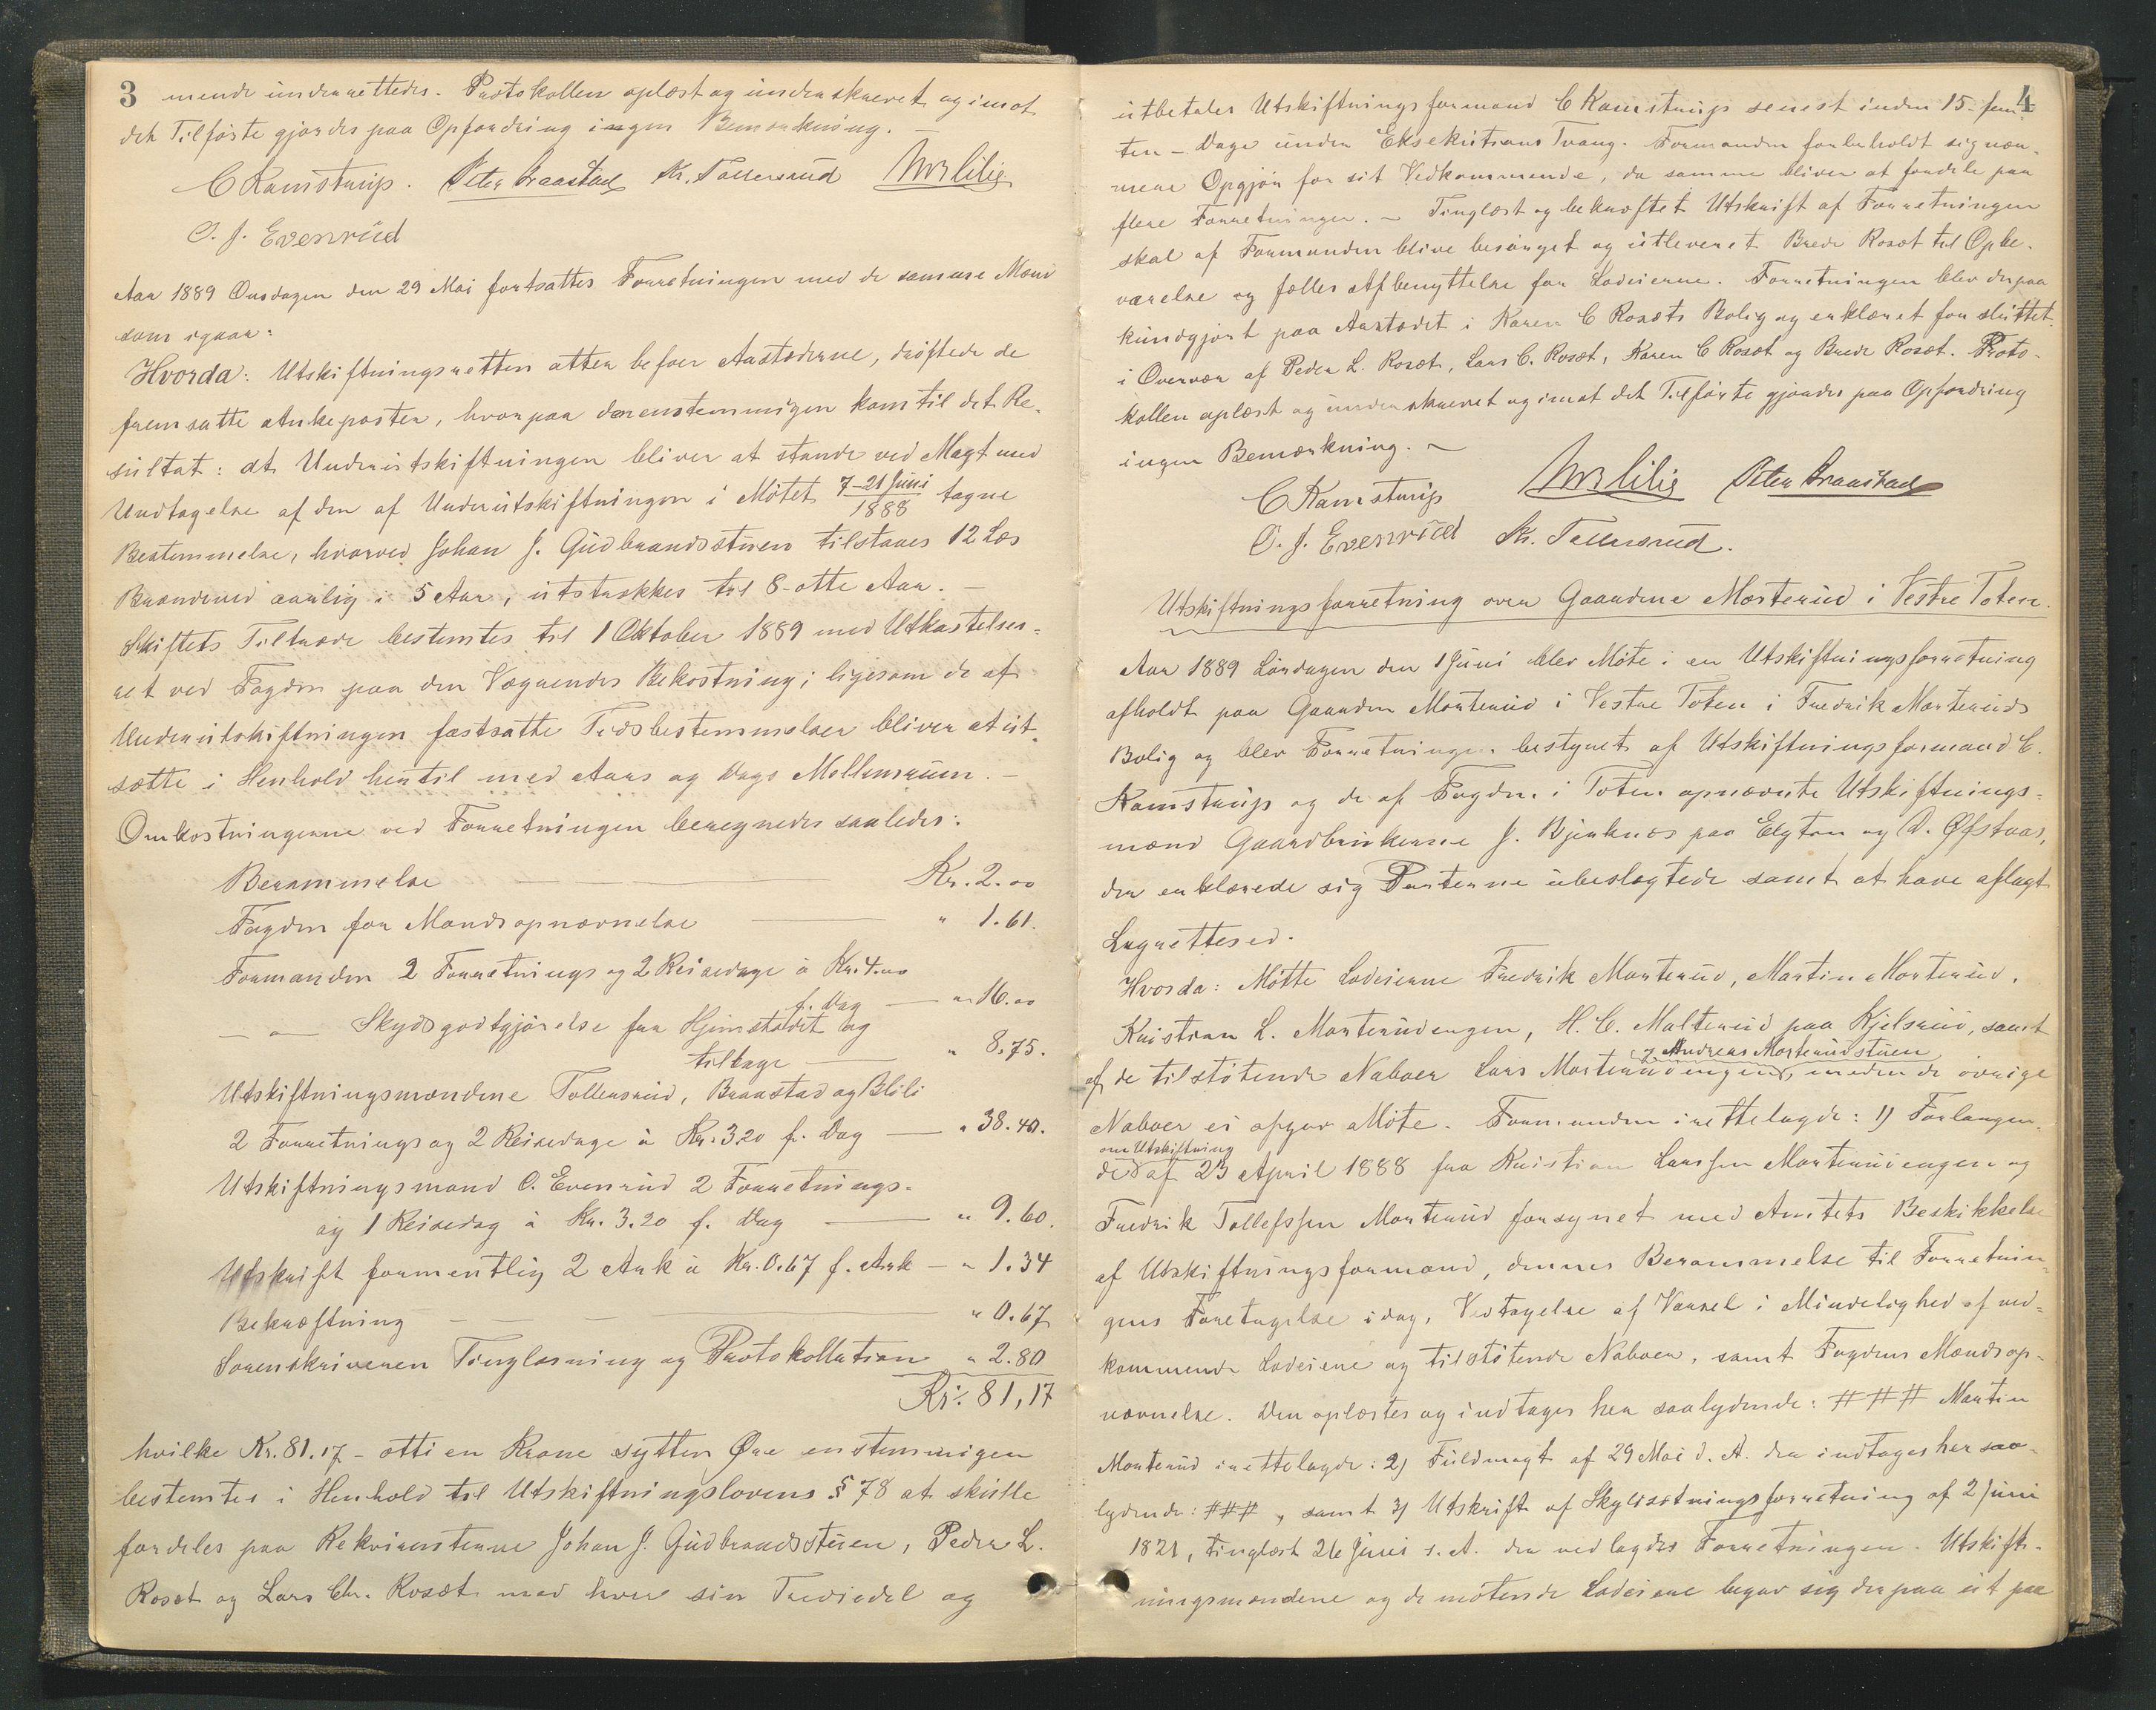 3
mende underrettedes. Protokollen oplæst og underskrevet og imot
det Tilførte gjordes paa Opfordring ingen Bemærkning. —
C Kamstrup. Peter Braastad Kr. Tollersrud
O. J. Evenrud
Aar 1889 Onsdagen den 29 Mai fortsattes Forretningen med de samme Mænd
som igaar:
Hvorda: Utskiftningsretten atter befoer Aastederne, drøftede de
fremsatte Ankeposter, hvorpaa den enstemmigen kom til det Re-
sultat: at Underutskiftningen bliver at stande ved Magt med
Undtagelse af den af Underutskiftningen i Møtet 7-21 Juni 1888 tagne
Bestemmelse, hvorved Johan J. Gudbrandsstuen tilstaaes 12 Læs
Brændeved aarlig i 5 Aar, utstrækkes til 8-otte Aar. —
Skiftets Tiltræde bestemtes til 1 Oktober 1889 med Utkastelses-
ret ved Fogden paa den Vægrendes Bekostning; ligesom de af
Underutskiftningen fastsatte Tidsbestemmelser bliver at ut-
sætte i Henhold hertil med Aars og Dags Mellemrum. —
Omkostningerne ved Forretningen beregnedes saaledes:
Berammelse — Kr. 2.00
Fogden for Mandsopnævnelse — " 1.61.
Formanden 2 Forretnings og 2 Reisedage à Kr. 4.00
f. Dag — " 16.00
— " — Skydsgodtgjørelse fra Hjemstedet og
tilbage — " 8,75.
Utskiftningsmændene Tollersrud, Braastad og Blili
2 Forretnings og 2 Reisedage à Kr. 3.20 f. Dag — " 38.40.
Utskiftningsmand O. Evenrud 2 Forretnings-
og 1 Reisedag à Kr. 3.20 f. Dag — " 9.60.
Utskrift formentlig 2 Ark à Kr. 0.67 f. Ark — " 1.34
Bekræftning — " 0.67
Sorenskriveren Tinglæsning og Protokollation " 2.80
Kr. 81,17
hvilke Kr. 81.17 - otti en Krone sytten Øre enstemmigen
bestemtes i Henhold til Utskiftningslovens § 78 at skulle
fordeles paa Rekvirenterne Johan J. Gudbrandsstuen, Peder L.
Rosæt og Lars Chr. Rosæt med hver sin Trediedel og
4
utbetales Utskiftningsformand C Kamstrup senest inden 15-fem-
ten - Dage under Eksekutions Tvang. Formanden forbeholdt sig nær-
mere Opgjør for sit Vedkommende, da samme bliver at fordele paa
flere Forretninger. — Tinglæst og bekræftet Utskrift af Forretningen
skal af Formanden blive besørget og utleveret Brede Rosæt til Opbe-
varelse og fælles Afbenyttelse for Lodeierne. Forretningen blev derpaa
kundgjort paa Aastedet i Karen C Rosæts Bolig og erklæret for sluttet
i Overvær af Peder L. Rosæt, Lars C. Rosæt, Karen C Rosæt og Brede Rosæt. Proto-
kollen oplæst og underskrevet og imot det Tilførte gjordes paa Opfordring
ingen Bemærkning. —
C Kamstrup Peter Braastad
O. J. Evenrud Kr. Tollersrud.
Utskiftningsforretning over Gaardene Mørterud i Vestre Toten.
Aar 1889 Lørdagen den 1 Juni blev Møte i en Utskiftningsforretning
afholdt paa Gaarden Morterud i Vestre Toten i Fredrik Morteruds
Bolig og blev Forretningen bestyret af Utskiftningsformand C.
Kamstrup og de af Fogden i Toten opnævnte Utskiftnings-
mænd Gaardbrukerne J. Bjerknes paa Elgton og D. Øfstaas,
der erklærede sig Parterne ubeslægtede samt at have aflagt
Lagrettesed.
Hvorda: Møtte Lodeierne Fredrik Morterud, Martin Morterud,
Kristian L. Morterudengen, H. C. Malterud paa Kjelsrud, samt
af de tilstøtende Naboer Lars Morterudengen og Andreas Morterudstuen, meden de øvrige
Naboer ei afgav Møte. Formanden irettelagde: 1) Forlangen-
de om Utskiftning af 23 April 1888 fra Kristian Larssen Morterudengen og
Fredrik Tollefssen Morterud forsynet med Amtets Beskikkelse
af Utskiftningsformand, dennes Berammelse til Forretnin-
gens Foretagelse idag, Vedtagelse af Varsel i Mindelighed af ved-
kommende Lodeiere og tilstøtende Naboer, samt Fogdens Mændsop-
nævnelse. Den oplæstes og indtages her saalydende: # # # Martin
Morterud irettelagde: 2) Fuldmagt af 29 Mai d. A. der indtages her saa-
lydende: # # #, samt 3) Utskrift af Skyldsætningsforretning af 2 Juni
1821, tinglæst 26 Juni s. A. der vedlagdes Forretningen. Utskift-
ningsmændene og de møtende Lodeiere begav sig derpaa ut paa